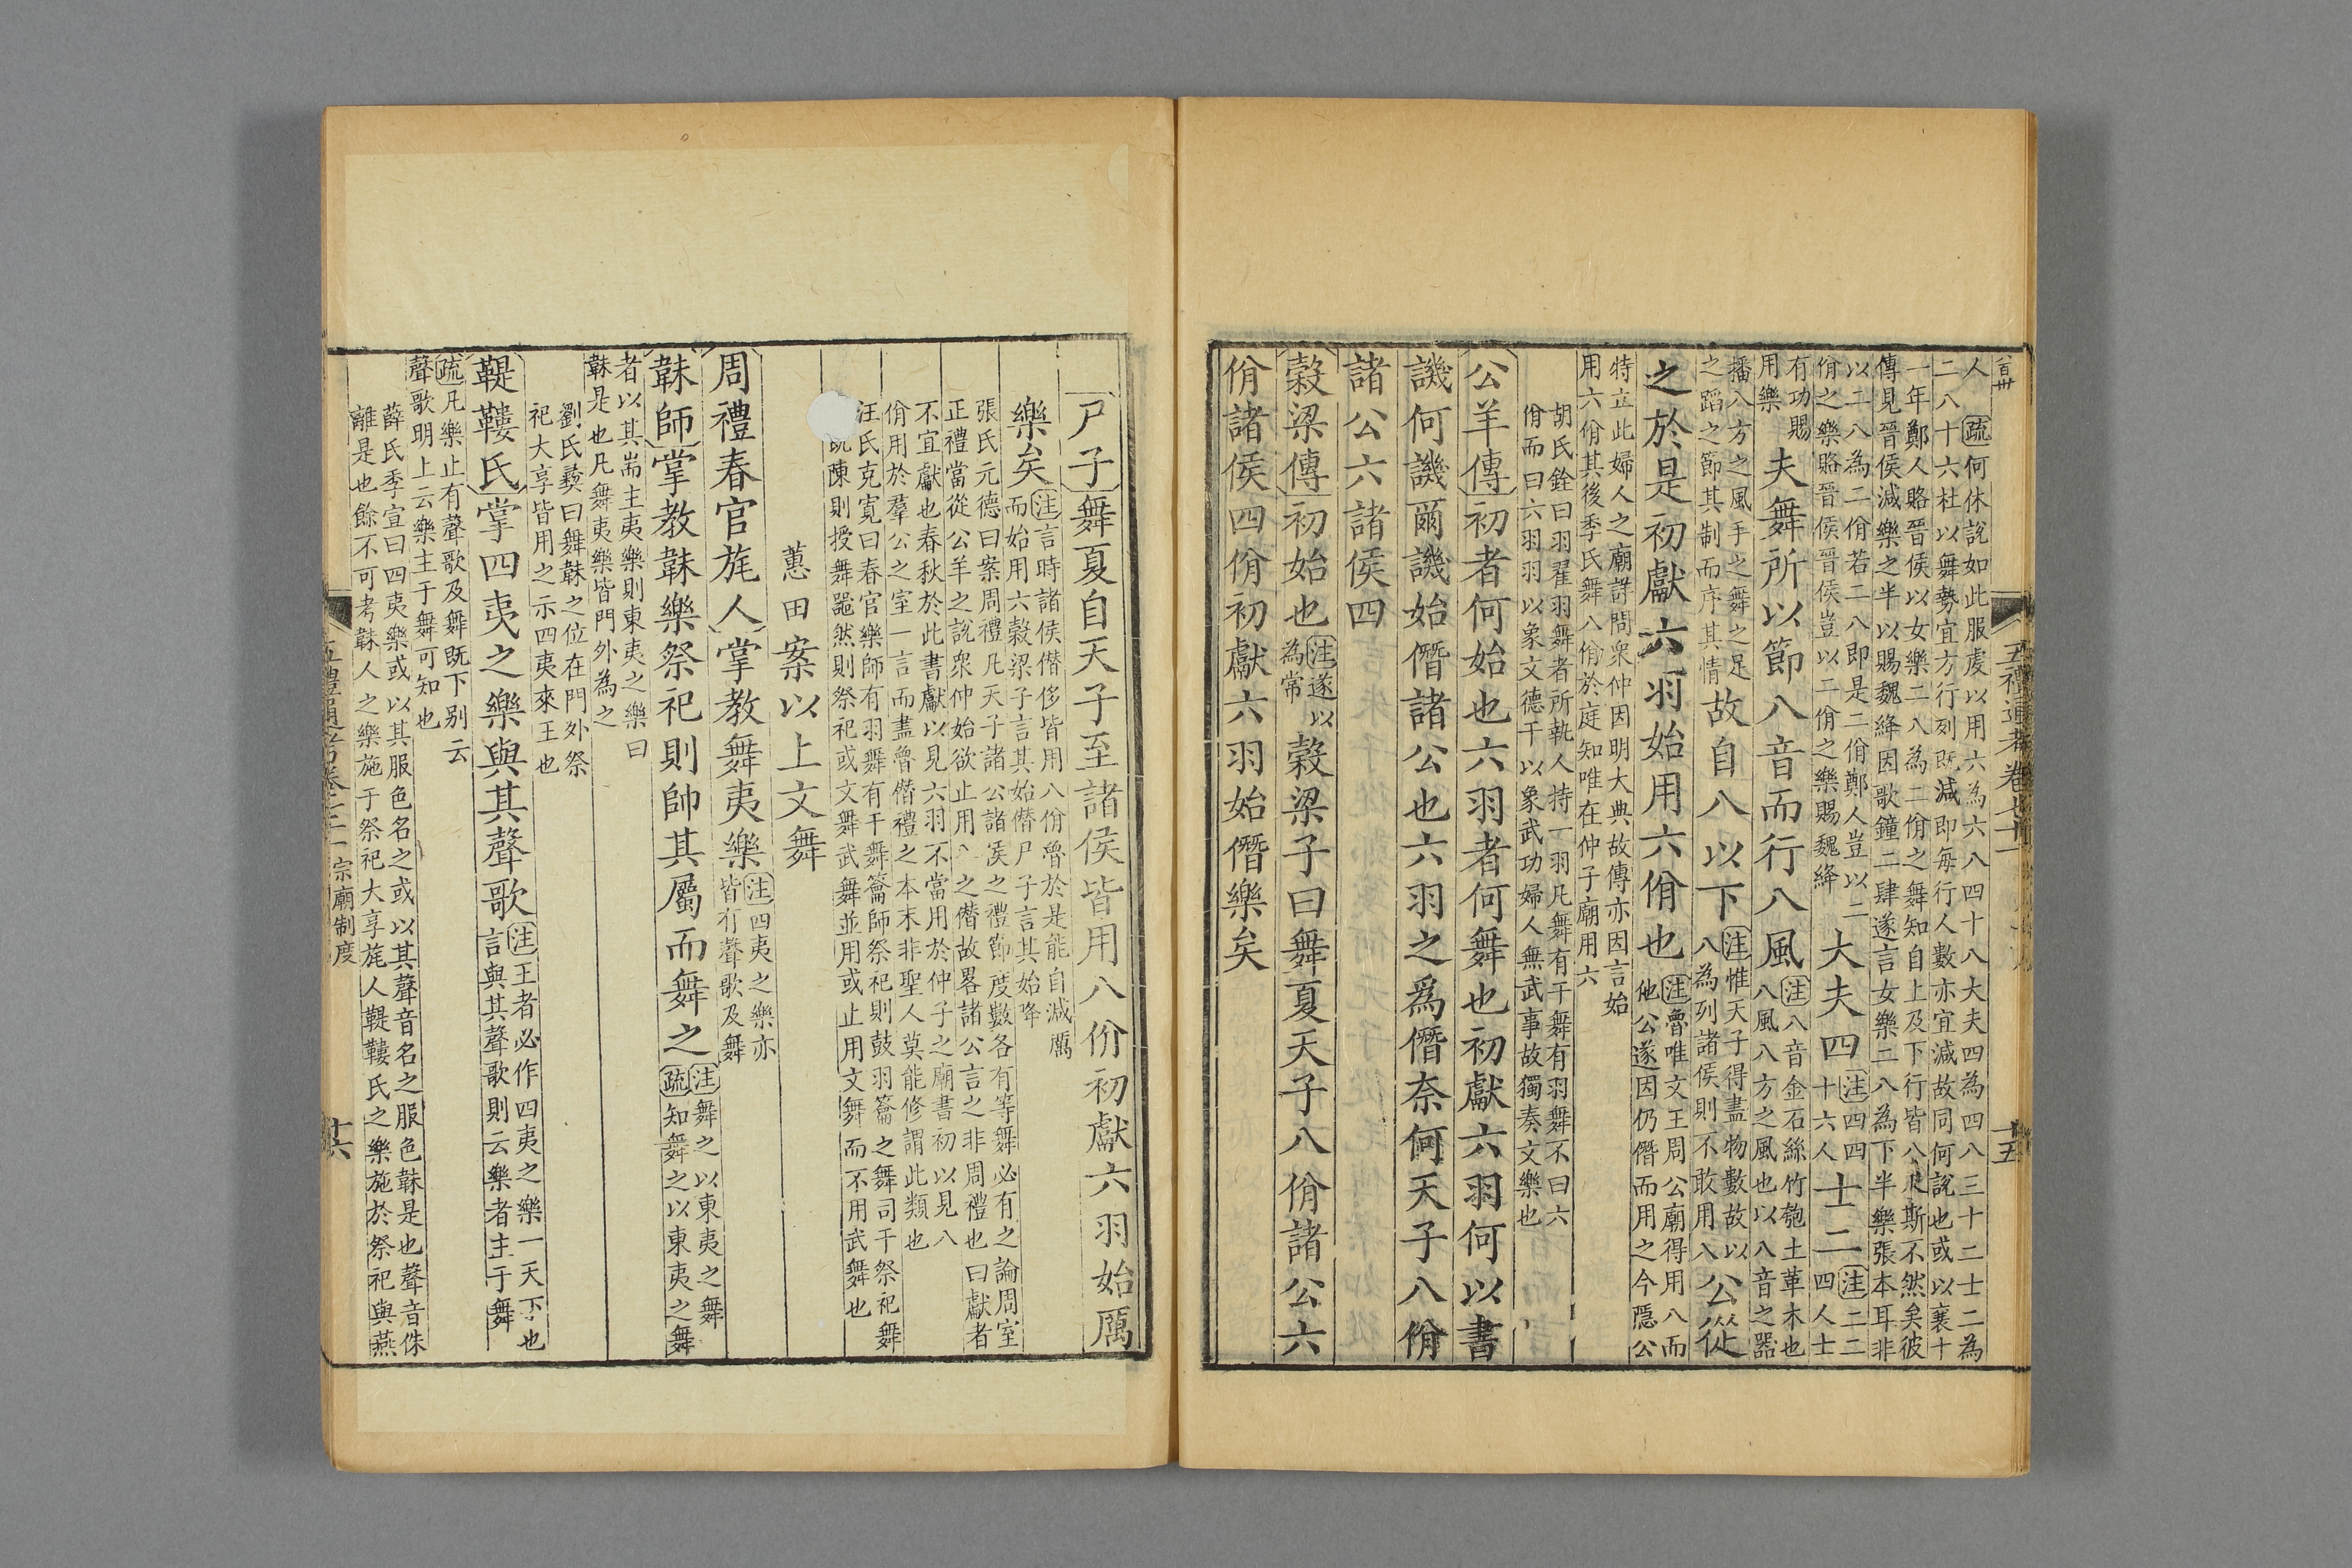 五禮通考卷七十一
十五
人疏何休說如此服虔以用六為六八四十八大夫四為四八三十二士二為
二八十六杜以舞勢宜方行列既減即每行人數亦宜減故同何說也或以襄十
一年鄭人賂晉侯以女樂二八為二佾之舞知自上及下行皆八人斯不然矣彼
傳見晉侯減樂之半以賜魏絳因歌鐘二肆遂言女樂二八為下半樂張本耳非
以二八為二佾若二八即是二佾鄭人豈以二
佾之樂賂晉侯晉侯豈以二佾之樂賜魏絳
大夫四注四四十六人士二注二二四人士
有功賜用樂夫舞所以節八音而行八風注八音金石絲竹匏土革木也八風八方之風也以八音之器
播八方之風手之舞之足之蹈之節其制而序其情故自八以下注惟天子得盡物數故以八為列諸侯則不敢用八公從
之於是初獻六羽始用六佾也注魯唯文王周公廟得用八而他公遂因仍僭而用之今隱公
特立此婦人之廟詳問衆仲因明大典故傳亦因言始
用六佾其後季氏舞八佾於庭知唯在仲子廟用六
胡氏銓曰羽翟羽舞者所執人持一羽凡舞有干舞有羽舞不曰六
佾而曰六羽羽以象文德干以象武功婦人無武事故獨奏文樂也
公羊傳初者何始也六羽者何舞也初獻六羽何以書
譏何譏爾譏始僭諸公也六羽之爲僭奈何天子八佾
諸公六諸侯四
穀梁傳初始也注遂以為常穀梁子曰舞夏天子八佾諸公六
佾諸侯四佾初獻六羽始僭樂矣
尸子舞夏自天子至諸侯皆用八佾初獻六羽始厲
樂矣注言時諸侯僭侈皆用八佾魯於是能自減厲而始用六穀梁子言其始僭尸子言其始降
張氏元德曰案周禮凡天子諸公諸侯之禮節度數各有等舞必有之論周室
正禮當從公羊之說衆仲始欲止用八之僭故畧諸公言之非周禮也曰獻者
不宜獻也春秋於此書獻以見六羽不當用於仲子之廟書初以見八
佾用於羣公之室一言而盡魯僭禮之本末非聖人莫能修謂此類也
汪氏克寬曰春官樂師有羽舞有干舞籥師祭祀則鼓羽籥之舞司干祭祀舞
既陳則授舞器然則祭祀或文舞武舞並用或止用文舞而不用武舞也
蕙田案以上文舞
周禮春官旄人掌教舞夷樂注四夷之樂亦皆有聲歌及舞
韎師掌教韎樂祭祀則帥其屬而舞之注舞之以東夷之舞疏知舞之以東夷之舞
者以其耑主夷樂則東夷之樂曰
韎是也凡舞夷樂皆門外為之
劉氏彝曰舞韎之位在門外祭
祀大享皆用之示四夷來王也
鞮鞻氏掌四夷之樂與其聲歌注王者必作四夷之樂一天下也言與其聲歌則云樂者主于舞
疏凡樂止有聲歌及舞既下别云
聲歌明上云樂主于舞可知也
薛氏季宣曰四夷樂或以其服色名之或以其聲音名之服色韎是也聲音侏
離是也餘不可考韎人之樂施于祭祀大享旄人鞮鞻氏之樂施於祭祀與燕
宗廟制度
十六